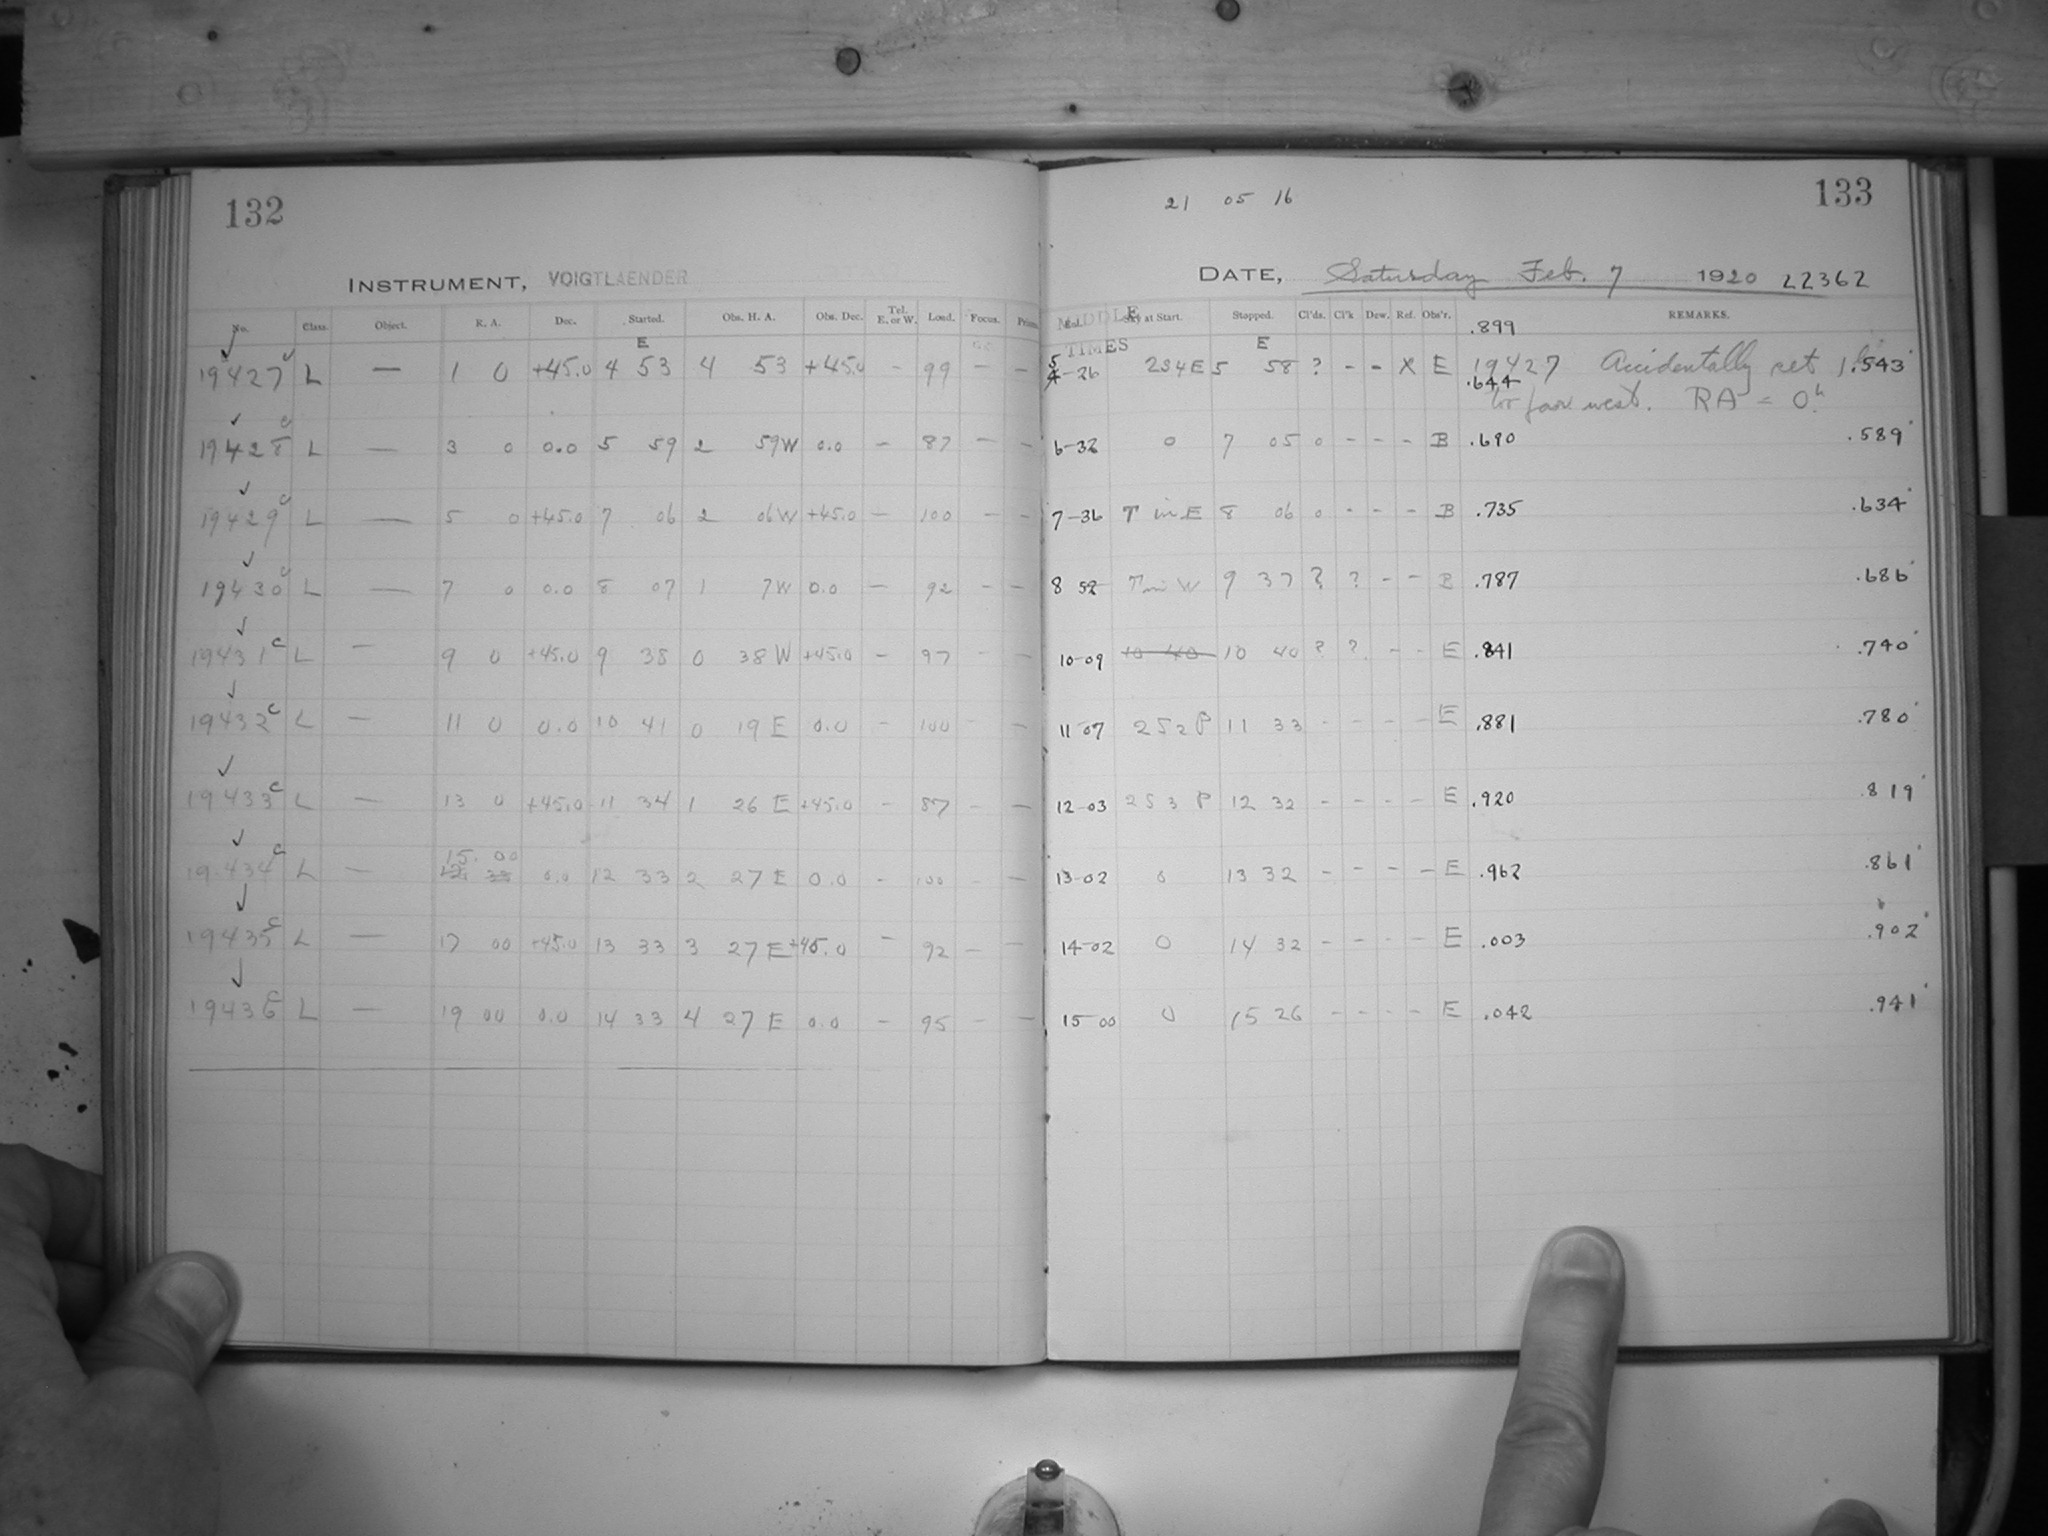 132
21 05 16
133
INSTRUMENT, VOIGTLAENDER
DATE, Saturday Feb. 7 1920 22362
No. Class. Object. R. A. Dec. Started. Obs. H. A. Obs. Dec. Tel. E. or W. Load. Focus. Prism. Col. Sky at Start. Stopped. Cl'ds. Cl'k Dew. Ref. Obs'r. REMARKS.
MIDDLE TIMES
.899
E E
19427 L — 1 0 +45.0 4 53 4 53 +45.0 - 99 - - 5-26 234E 5 58 ? - - X E 19427 Accidentally set 1h .543
.644 too far west. RA = 0h
19428 c L — 3 0 0.0 5 59 2 59W 0.0 - 87 - - 6-32 0 7 05 0 - - - B .690 .589
19429 c L — 5 0 +45.0 7 06 2 06W +45.0 - 100 - - 7-36 T in E 8 06 0 - - - B .735 .634
19430 c L — 7 0 0.0 8 07 1 7W 0.0 - 92 - - 8 52 T in W 9 37 ? ? - - B .787 .686
19431 c L — 9 0 +45.0 9 38 0 38W +45.0 - 97 - - 10-09 10 40 10 40 ? ? - - E .841 .740
19432 c L — 11 0 0.0 10 41 0 19 E 0.0 - 100 - 11-07 252 P 11 33 - - - - E .881 .780
19433 c L — 13 0 +45.0 11 34 1 26 E +45.0 - 87 - - 12-03 253 P 12 32 - - - - E .920 .819
19434 c L — 15. 00 0.0 12 33 2 27 E 0.0 - 100 - - 13-02 0 13 32 - - - - E .962 .861
19435 c L — 17 00 +45.0 13 33 3 27 E +45.0 - 92 - - 14-02 0 14 32 - - - - E .003 .902
19436 c L — 19 00 0.0 14 33 4 27 E 0.0 - 95 - - 15-00 0 15 26 - - - - E .042 .941